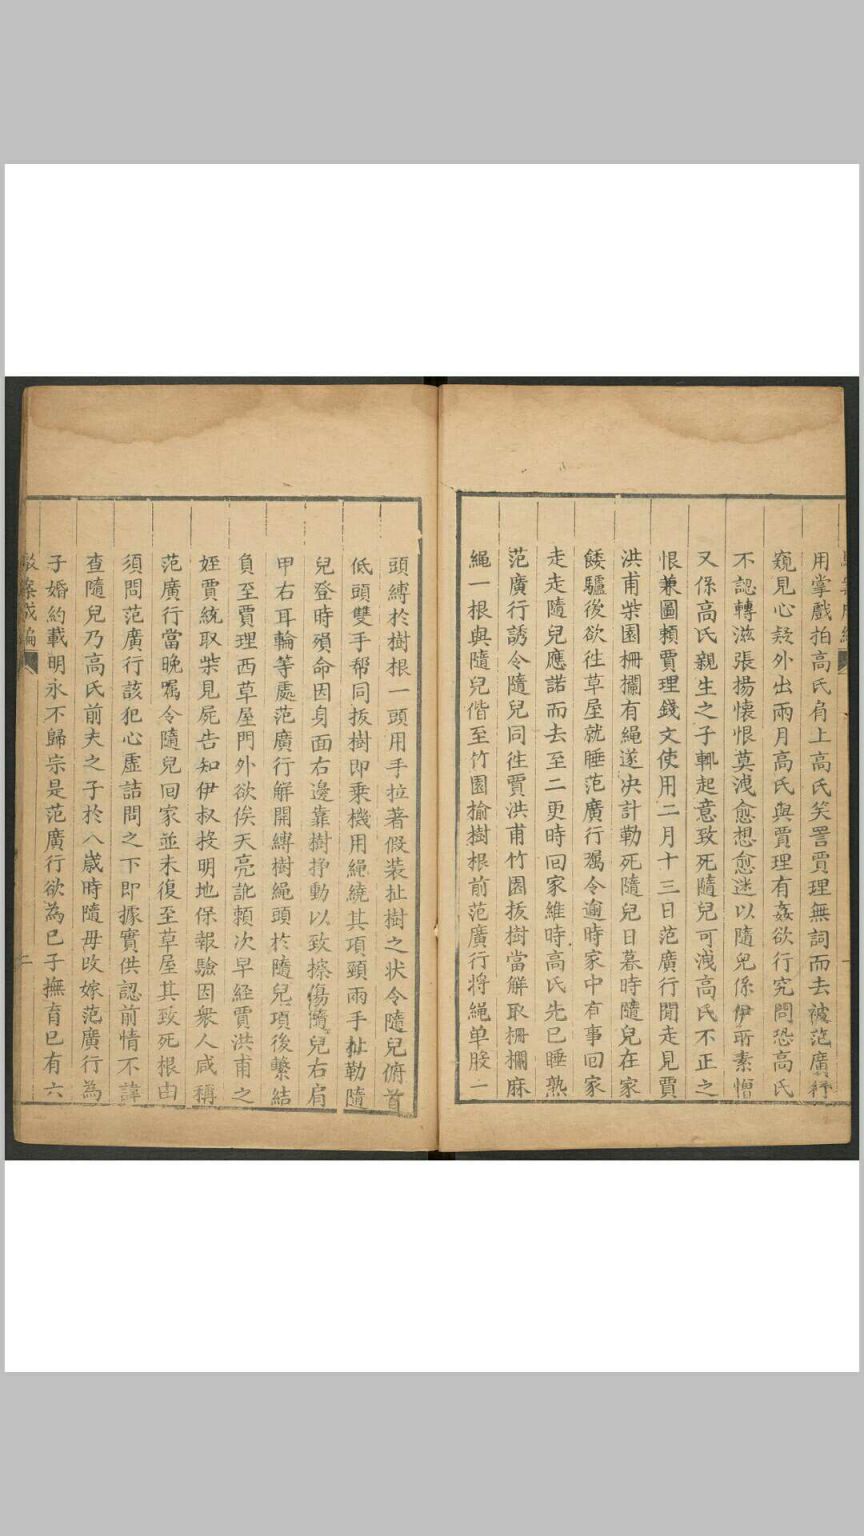 用掌戲拍高氏肩上高氏笑詈賈理無詞而去被范廣行
窺見心疑外出兩月高氏與賈理有姦欲行究問恐高氏
不認轉滋張揚懐恨莫洩愈想愈迷以隨兒係伊所素憎
又係高氏親生之子輒起意致死隨兒可洩高氏不正之
恨兼圖賴賈理錢文使用二月十三日范廣行閒走見賈
洪甫柴園柵攔有繩遂决計勒死隨兒日暮時隨兒在家
餧驢後欲徃草屋就睡范廣行囑令逾時家中有事回家
走走隨兒應諾而去至二更時回家維時高氏先已睡熟
范廣行誘令隨兒同徃賈洪甫竹園拔樹當解取柵攔麻
繩一根與隨兒偕至竹園榆樹根前范廣行将繩单股一
頭縛於樹根一頭用手拉著假装扯樹之状令隨兒俯首
低頭雙手帮同拔樹即乗機用繩繞其項頸兩手扯勒隨
兒登時殞命因身面右邊靠樹挣動以致擦傷隨兒右肩
甲右耳輪等處范廣行解開縛樹繩頭於隨兒項後繫結
負至賈理西草屋門外欲俟天亮訛頼次早経賈洪甫之
姪賈統取柴見屍告知伊叔投明地保報驗因衆人咸稱
范廣行當晚囑令隨兒回家並未復至草屋其致死根由
須問范廣行該犯心虛詰問之下即據實供認前情不諱
查隨兒乃高氏前夫之子於八歲時隨毋改嫁范廣行為
子婚約載明永不歸宗是范廣行欲為已子撫育已有六
駁案成編
二